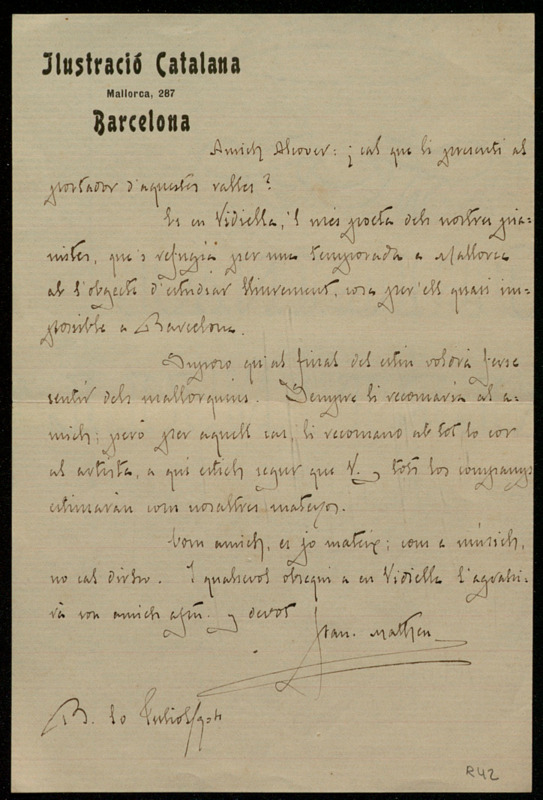 Ilustració Catalana
Mallorca, 287
Barcelona
Amich Alcover: ¿cal que li presenti al
portador d'aquestes ralles?
Es en Vidiella, 'l més poeta dels nostres pia-
nistes, que 's refugia per una temporada a Mallorca
ab l'objecte d'estudiar lliurement, cosa per'ell quasi im-
possible a Barcelona.
Suposo qu'al final del estiu voldrà ferse
sentir dels mallorquins. Sempre li recomaria al a-
mich; però per aquell cas, li recomano ab tot lo cor
al artista, a qui estich segur que V. y tots los companys
estimaràn com nosaltres mateixos.
Com amich, es jo mateix; com a músich,
no cal dirho. I qualsevol obsequi a en Vidiella l'agrahi-
rà son amich afm. y devot
Fran. Matheu
B. 20 Juliol
R42